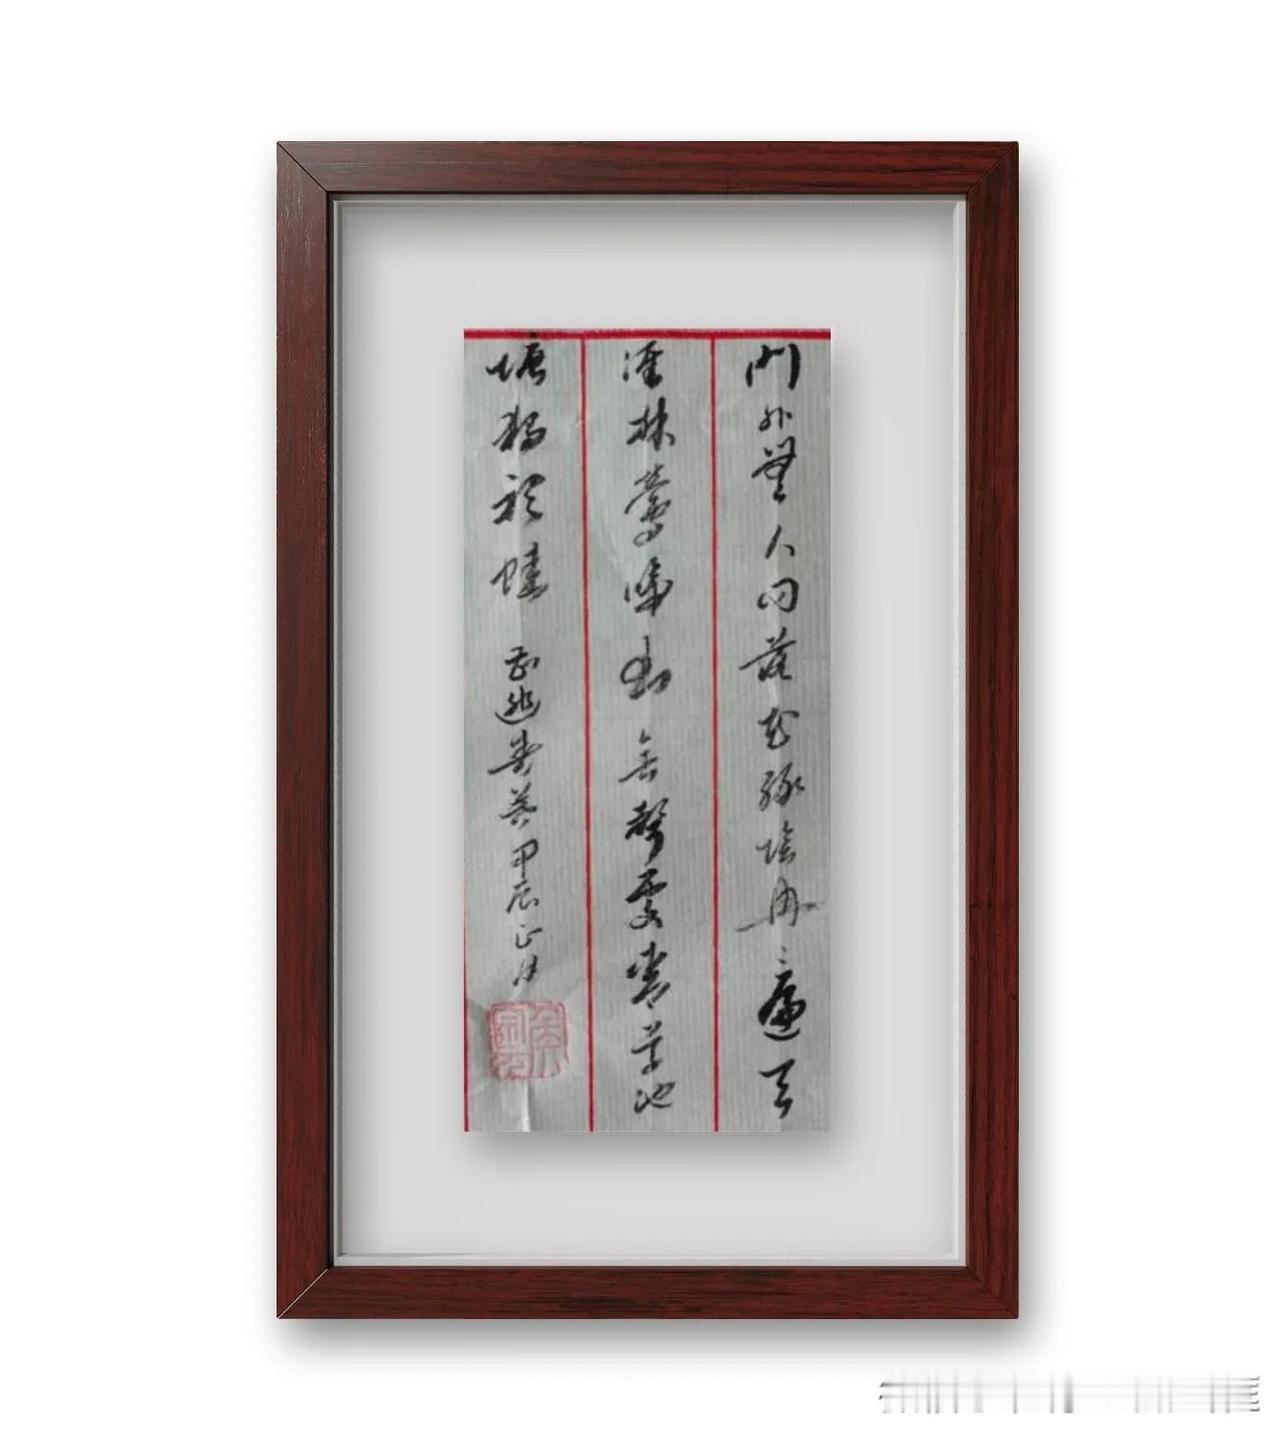 門外無人問落花綠陰冉〻遍天
涯林鶯啼到無聲處青草池
塘獨聽蛙 春暮甲辰正月